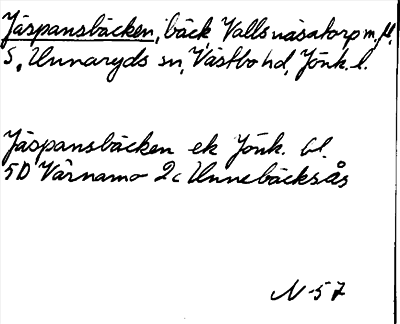 Jäspansbäcken, bäck, Vallsnäsatorp m. fl.
S. Unnaryds sn, Västbo hd, Jönk. l.
Jäspansbäcken ek Jönk. bl.
5D Värnamo 2c Unnebäcksås
N-57